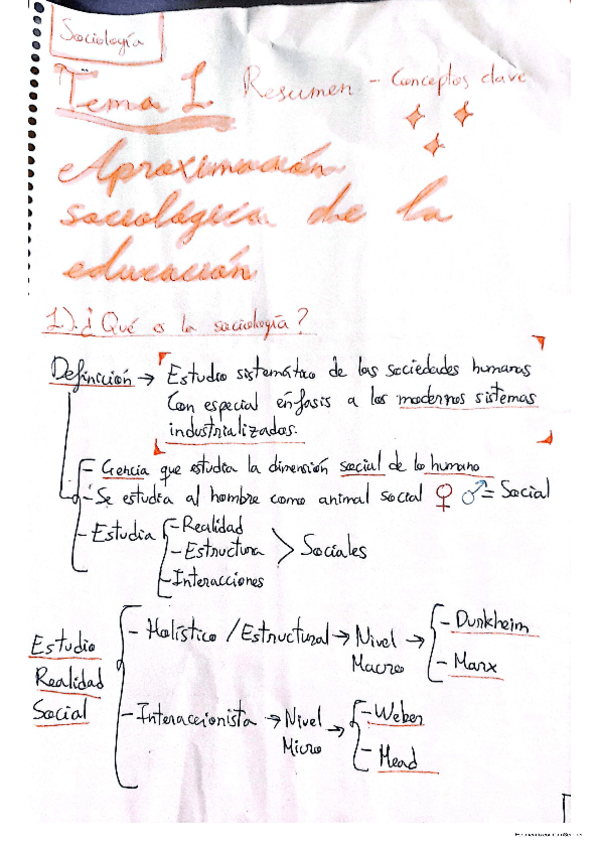 Sociología
Tema 1 Resumen - Conceptos clave
Aproximación
sociológica de la
educación
1). ¿Qué es la sociología?
Definición → Estudio sistemático de las sociedades humanas
Con especial énfasis a los modernos sistemas
industrializados.
- Ciencia que estudia la dimensión social de lo humano
- Se estudia al hombre como animal social ♀ ♂ = Social
- Estudia - Realidad
- Estructura > Sociales
- Interacciones
Estudio Realidad Social
- Holístico / Estructural → Nivel Macro → - Durkheim
- Marx
- Interaccionista → Nivel Micro → - Weber
- Mead